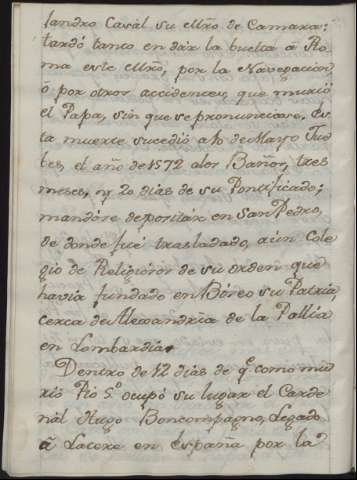 landro Casal su mro de Camara:
tardó tanto en dar la buelta á Ro-
ma este mro, por la Navegacion
ó por otros accidentes, que murió
el Papa, sin que se pronunciase. Es-
ta muerte sucedió a 1o de Mayo Jue-
bes, el año de 1572 a los 7 años, tres
meses, y 20 dias de su Pontificado;
mandóse depositar en San Pedro,
de donde fué trasladado, a un Cole-
gio de Religiosos de su orden que
havia fundado en Bóreo su Patria,
cerca de Alexandria de la Pallia
en Lombardia.
Dentro de 12 dias de q.e como mu-
rió Pio 5.o ocupó su lugar el Carde-
nál Hugo Boncompagno, Legado
á Latere en España por la